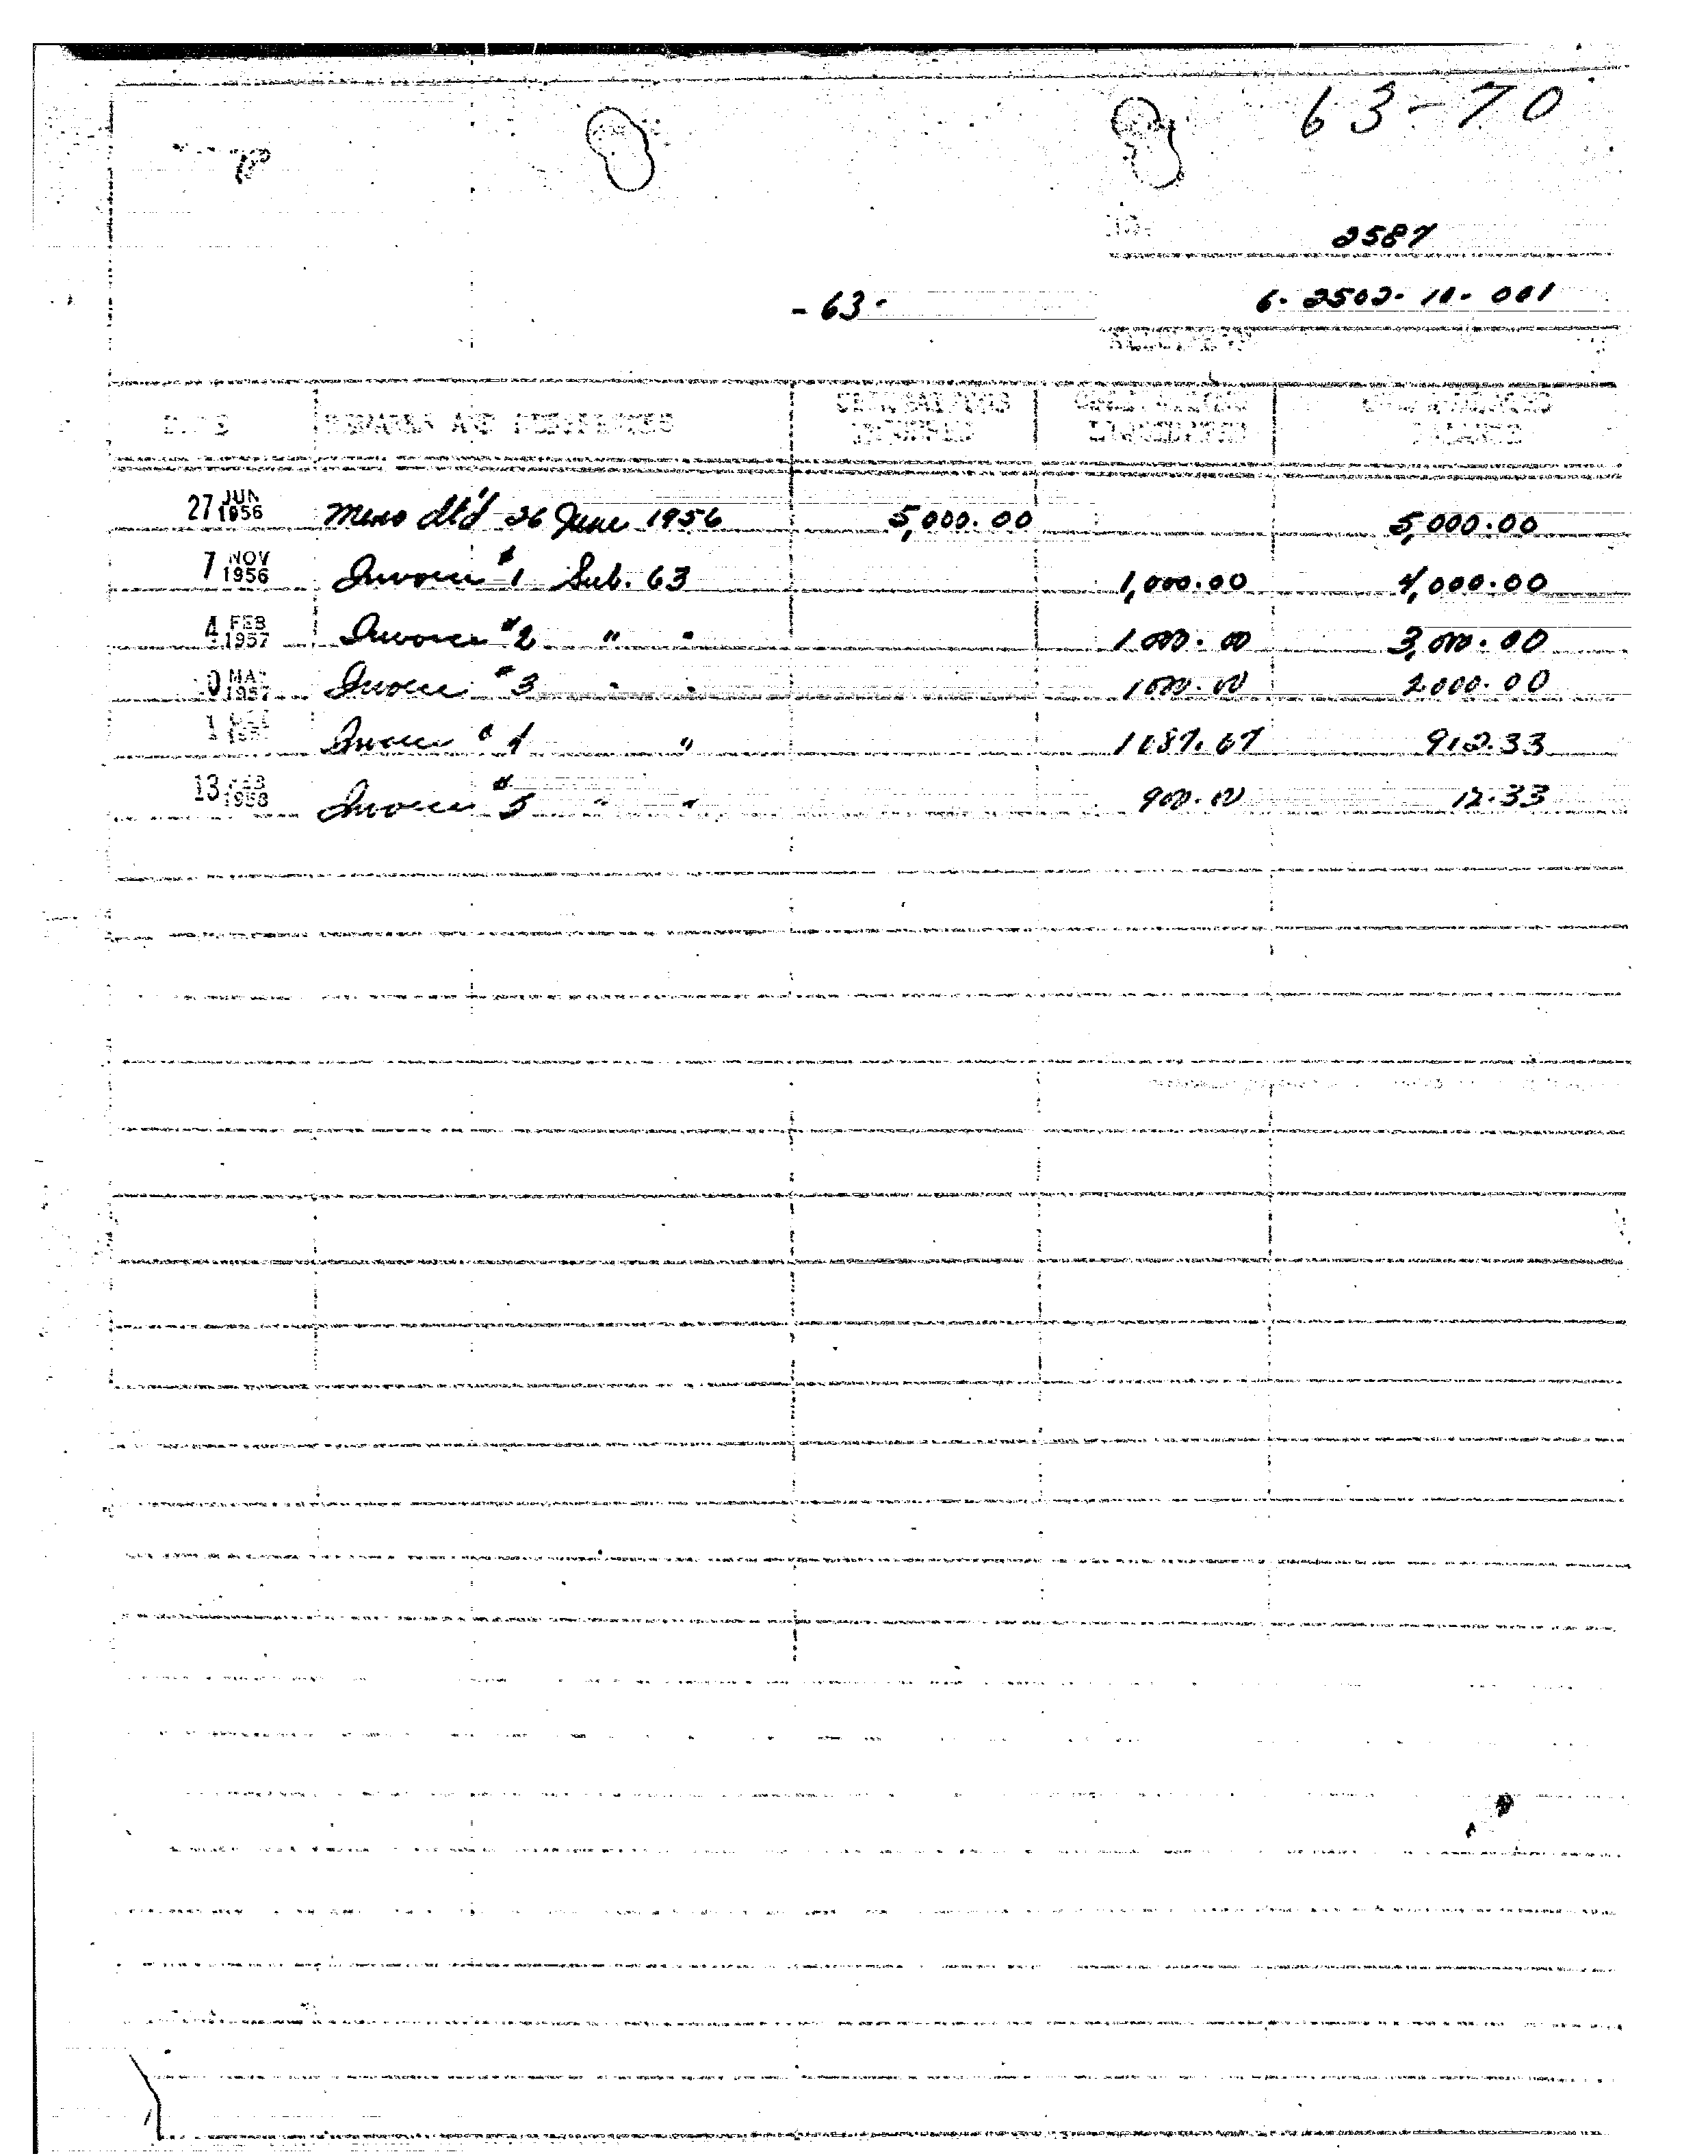 63-70
2587
- 63 -
6-2502-10-001
DATE REMARKS AND REFERENCES OBLIGATIONS INCURRED OBLIGATIONS LIQUIDATED UNLIQUIDATED BALANCE
27 JUN 1956 Memo dtd 26 June 1956 5,000.00 5,000.00
7 NOV 1956 Invoice #1 Sub. 63 1,000.00 4,000.00
4 FEB 1957 Invoice #2 " " 1000.00 3,000.00
1957 Invoice #3 " " 1000.00 2000.00
Invoice #4 " 1087.67 912.33
13 FEB 1958 Invoice #5 " " 900.00 12.33